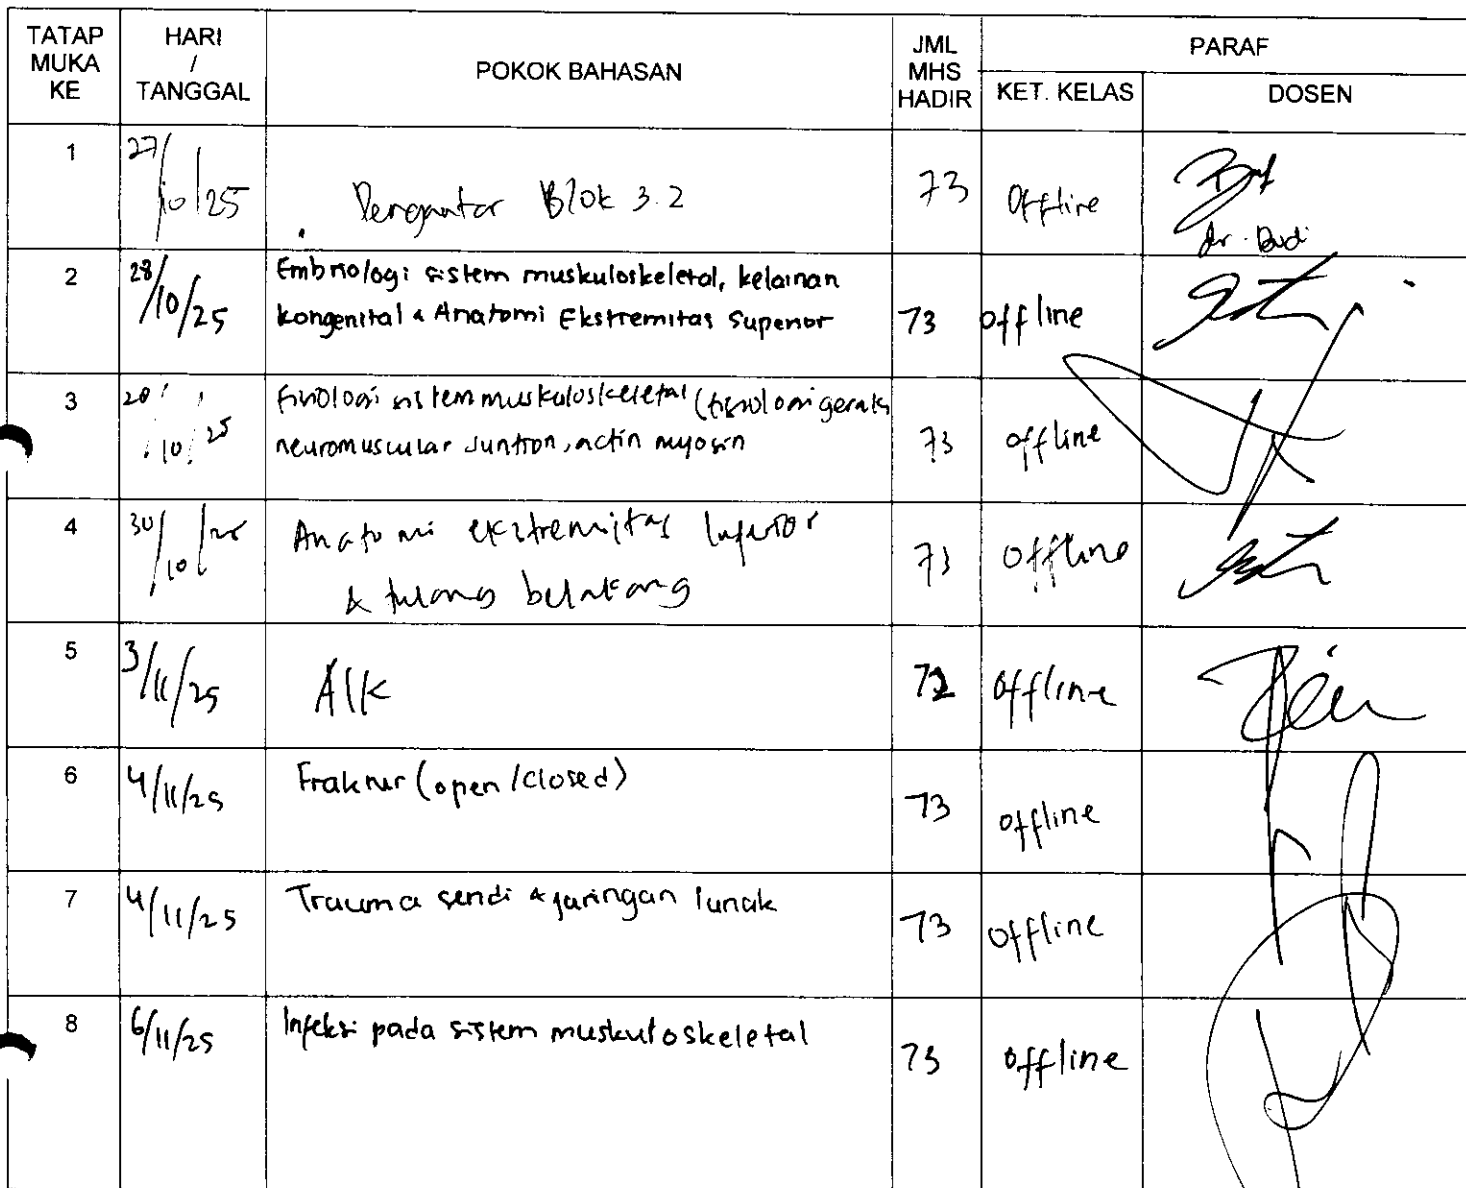 TATAP MUKA KE
HARI / TANGGAL
POKOK BAHASAN
JML MHS HADIR
PARAF
KET. KELAS
DOSEN
1 27/10/25 Pengantar Blok 3.2 73 Offline dr. Budi
2 28/10/25 Embriologi sistem muskuloskeletal, kelainan
kongenital & Anatomi Ekstremitas Superior 73 offline
3 /10/25 Fisiologi sistem muskuloskeletal (fisiologi gerak,
neuromuscular Juntion, actin myosin 73 offline
4 30/10/25 Anatomi ekstremitas Inferior
& tulang belakang 73 offline
5 3/11/25 AIK 72 offline
6 4/11/25 Fraktur (open/closed) 73 offline
7 4/11/25 Trauma sendi & jaringan lunak 73 offline
8 6/11/25 Infeksi pada sistem muskuloskeletal 73 offline